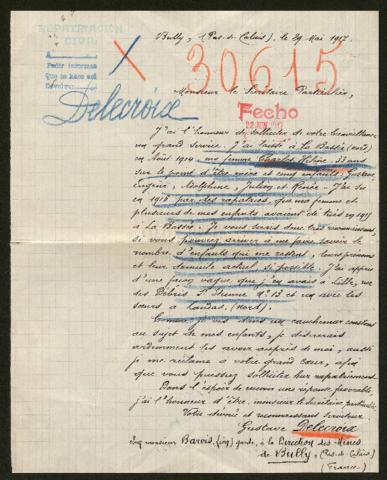 REPATRIACIÓN
CIVIL
A
Pedir informes
Que se hace así
Devolver
Bully, (Pas-de-Calais), le 29 Mai 1917.
30615
Monsieur le Secrétaire Particulier,
Fecho
Delecroix
J'ai l'honneur de solliciter de votre bienveillance
un grand service. J'ai laissé à La Bassée (nord)
en Août 1914, ma femme Charles Hélène, 33 ans
sur le point d'être mère et cinq enfants, Gustave,
Eugène, Adolphine, Julien et Renée. J'ai su
en 1916 par des rapatriés, que ma femme et
plusieurs de mes enfants avaient de tués en 1915
à La Bassée. Je vous serais donc très reconnaissant,
si vous pouviez arriver à me faire savoir le
nombre d'enfants qui me restent, leurs prénoms
et leur domicile actuel si possible. J'ai appris
d'une façon vague que j'en avais à Lille, rue
des Débris St Etienne No 13 et un avec les
sœurs à Landas, (nord).
Comme je vis dans un cauchemar constant
au sujet de mes enfants, je désirerais
ardemment les avoir auprès de moi, aussi
je me réclame à votre grand cœur, afin
que vous puissiez solliciter leur rapatriement.
Dans l'espoir de recevoir une réponse favorable,
j'ai l'honneur d'être, monsieur le Secrétaire particulier
Votre dévoué et reconnaissant serviteur
Gustave Delecroix
chez monsieur Barois, garde, à la Direction des Mines
de Bully, (Pas-de-Calais)
(France)